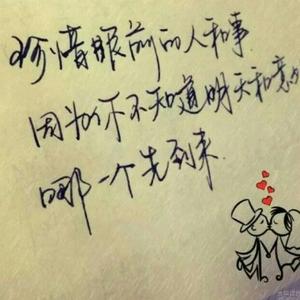 珍惜眼前的人和事
因为你不知道明天和意外
哪一个先到来.